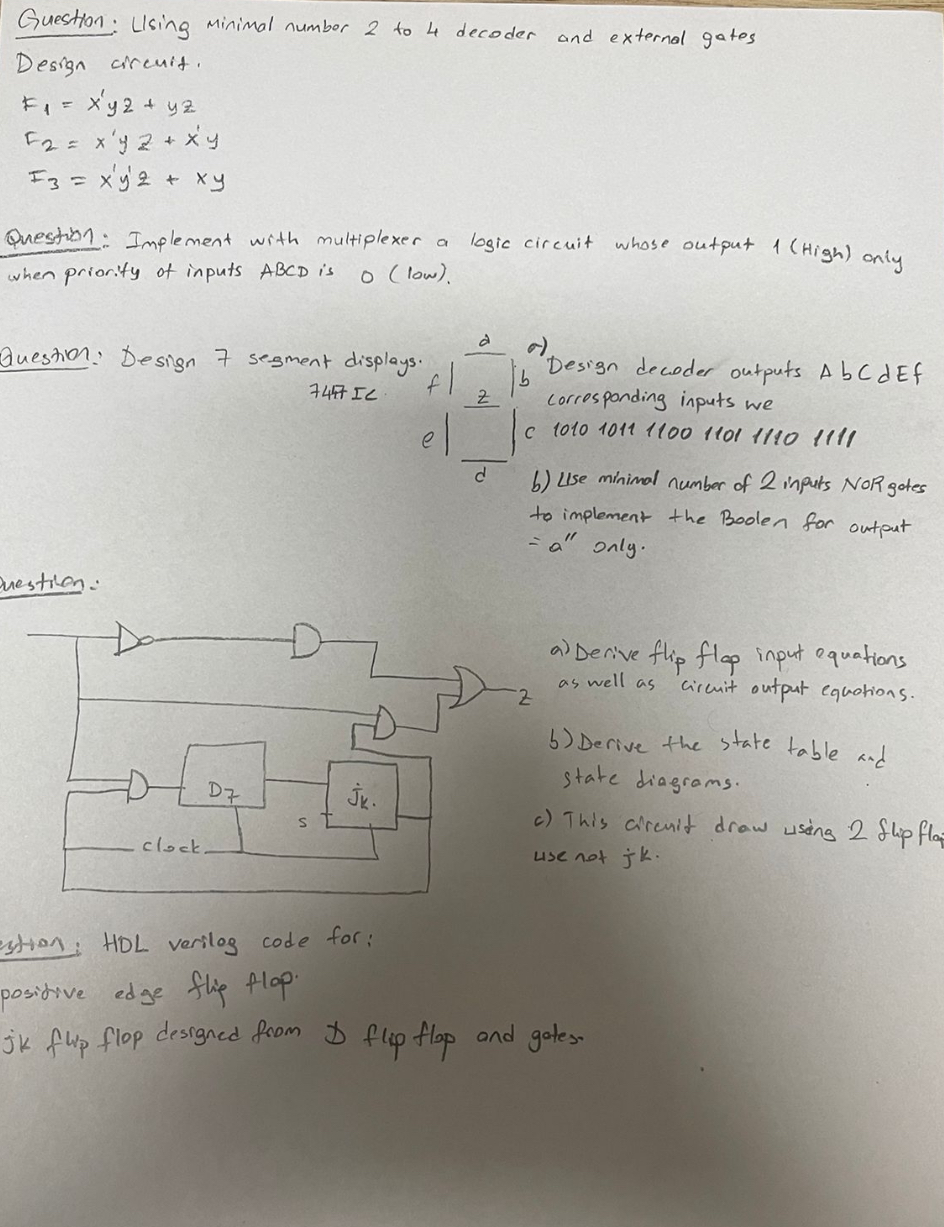 Question: Using minimal number 2 to 4 decoder and external gates
Design circuit.
F1 = x'yz + yz
F2 = x'yz + x'y
F3 = x'y'z + xy
Question: Implement with multiplexer a logic circuit whose output 1 (High) only
when priority of inputs ABCD is 0 (low).
Question: Design 7 segment displays.
7447 IC.
a
f
b
z
e
c
d
a)
Design decoder outputs A b C d E f
corresponding inputs we
1010 1011 1100 1101 1110 1111
b) Use minimal number of 2 inputs NOR gates
to implement the Boolen for output
= a" only.
uestion:
z
D7
jk.
s
clock
a) Derive flip flop input equations
as well as circuit output equations.
b) Derive the state table and
state diagrams.
c) This circuit draw using 2 flip flo
use not jk.
estion: HDL verilog code for:
positive edge flip flop.
jk flip flop designed from D flip flop and gates.